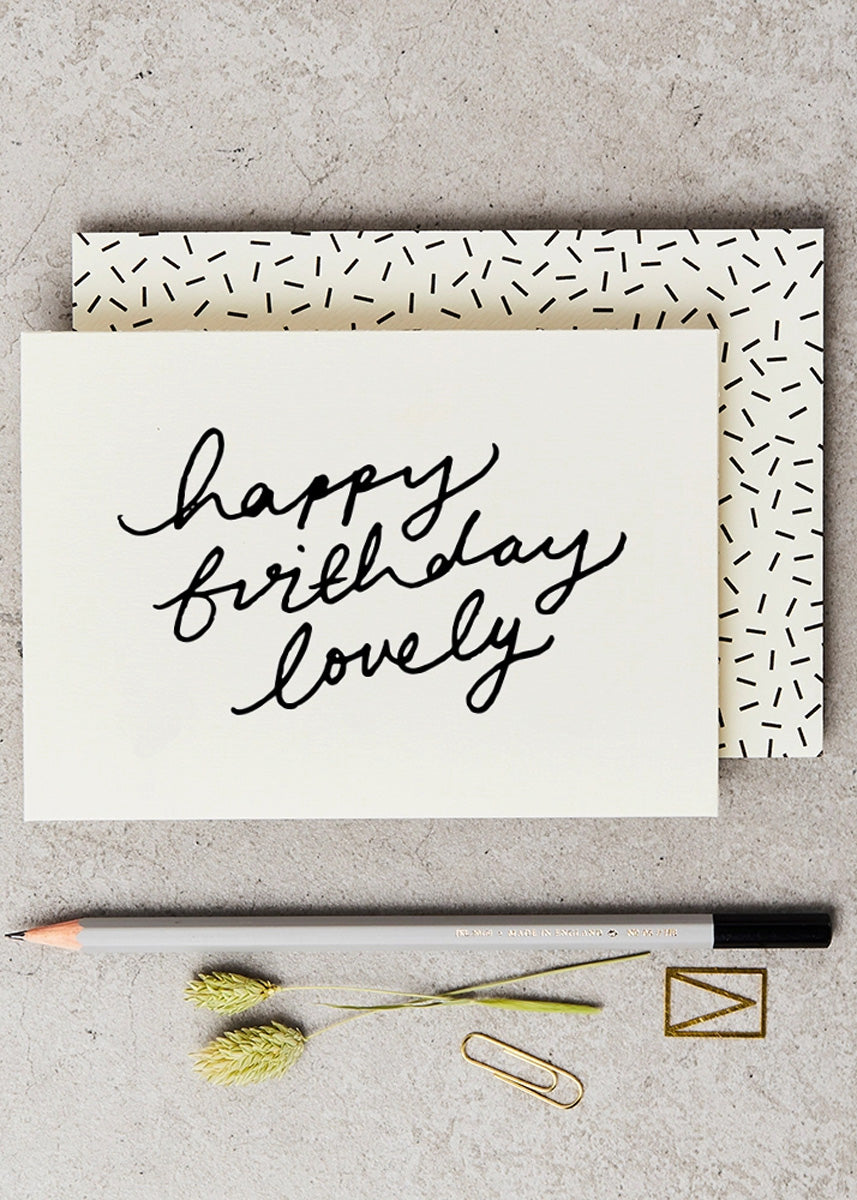 happy
birthday
lovely
MADE IN ENGLAND